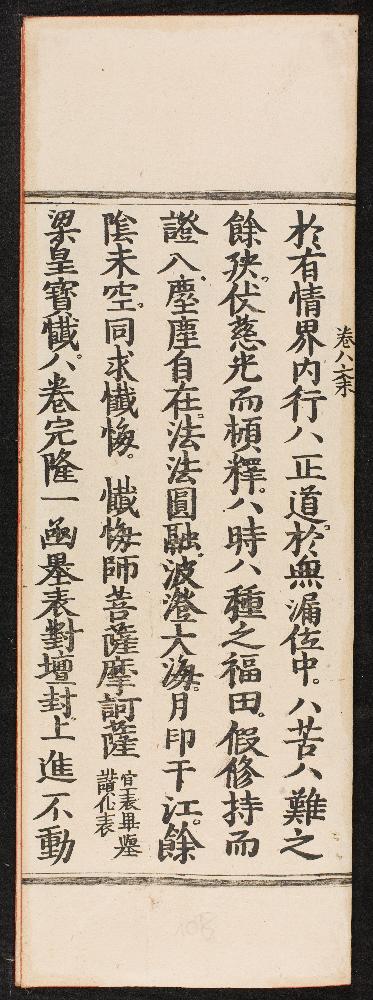 於有情界內行八正道。於無漏位中。八苦八難之
卷八末
餘殃。仗慈光而頓釋。八時八種之福田。假修持而
證入。塵塵自在。法法圓融。波澄大海。月印千江。餘
陰未空。同求懺悔。懺悔師菩薩摩訶薩
宣表畢墨
讚化表
梁皇寶懺八卷完隆一函墨表對壇封上進不動